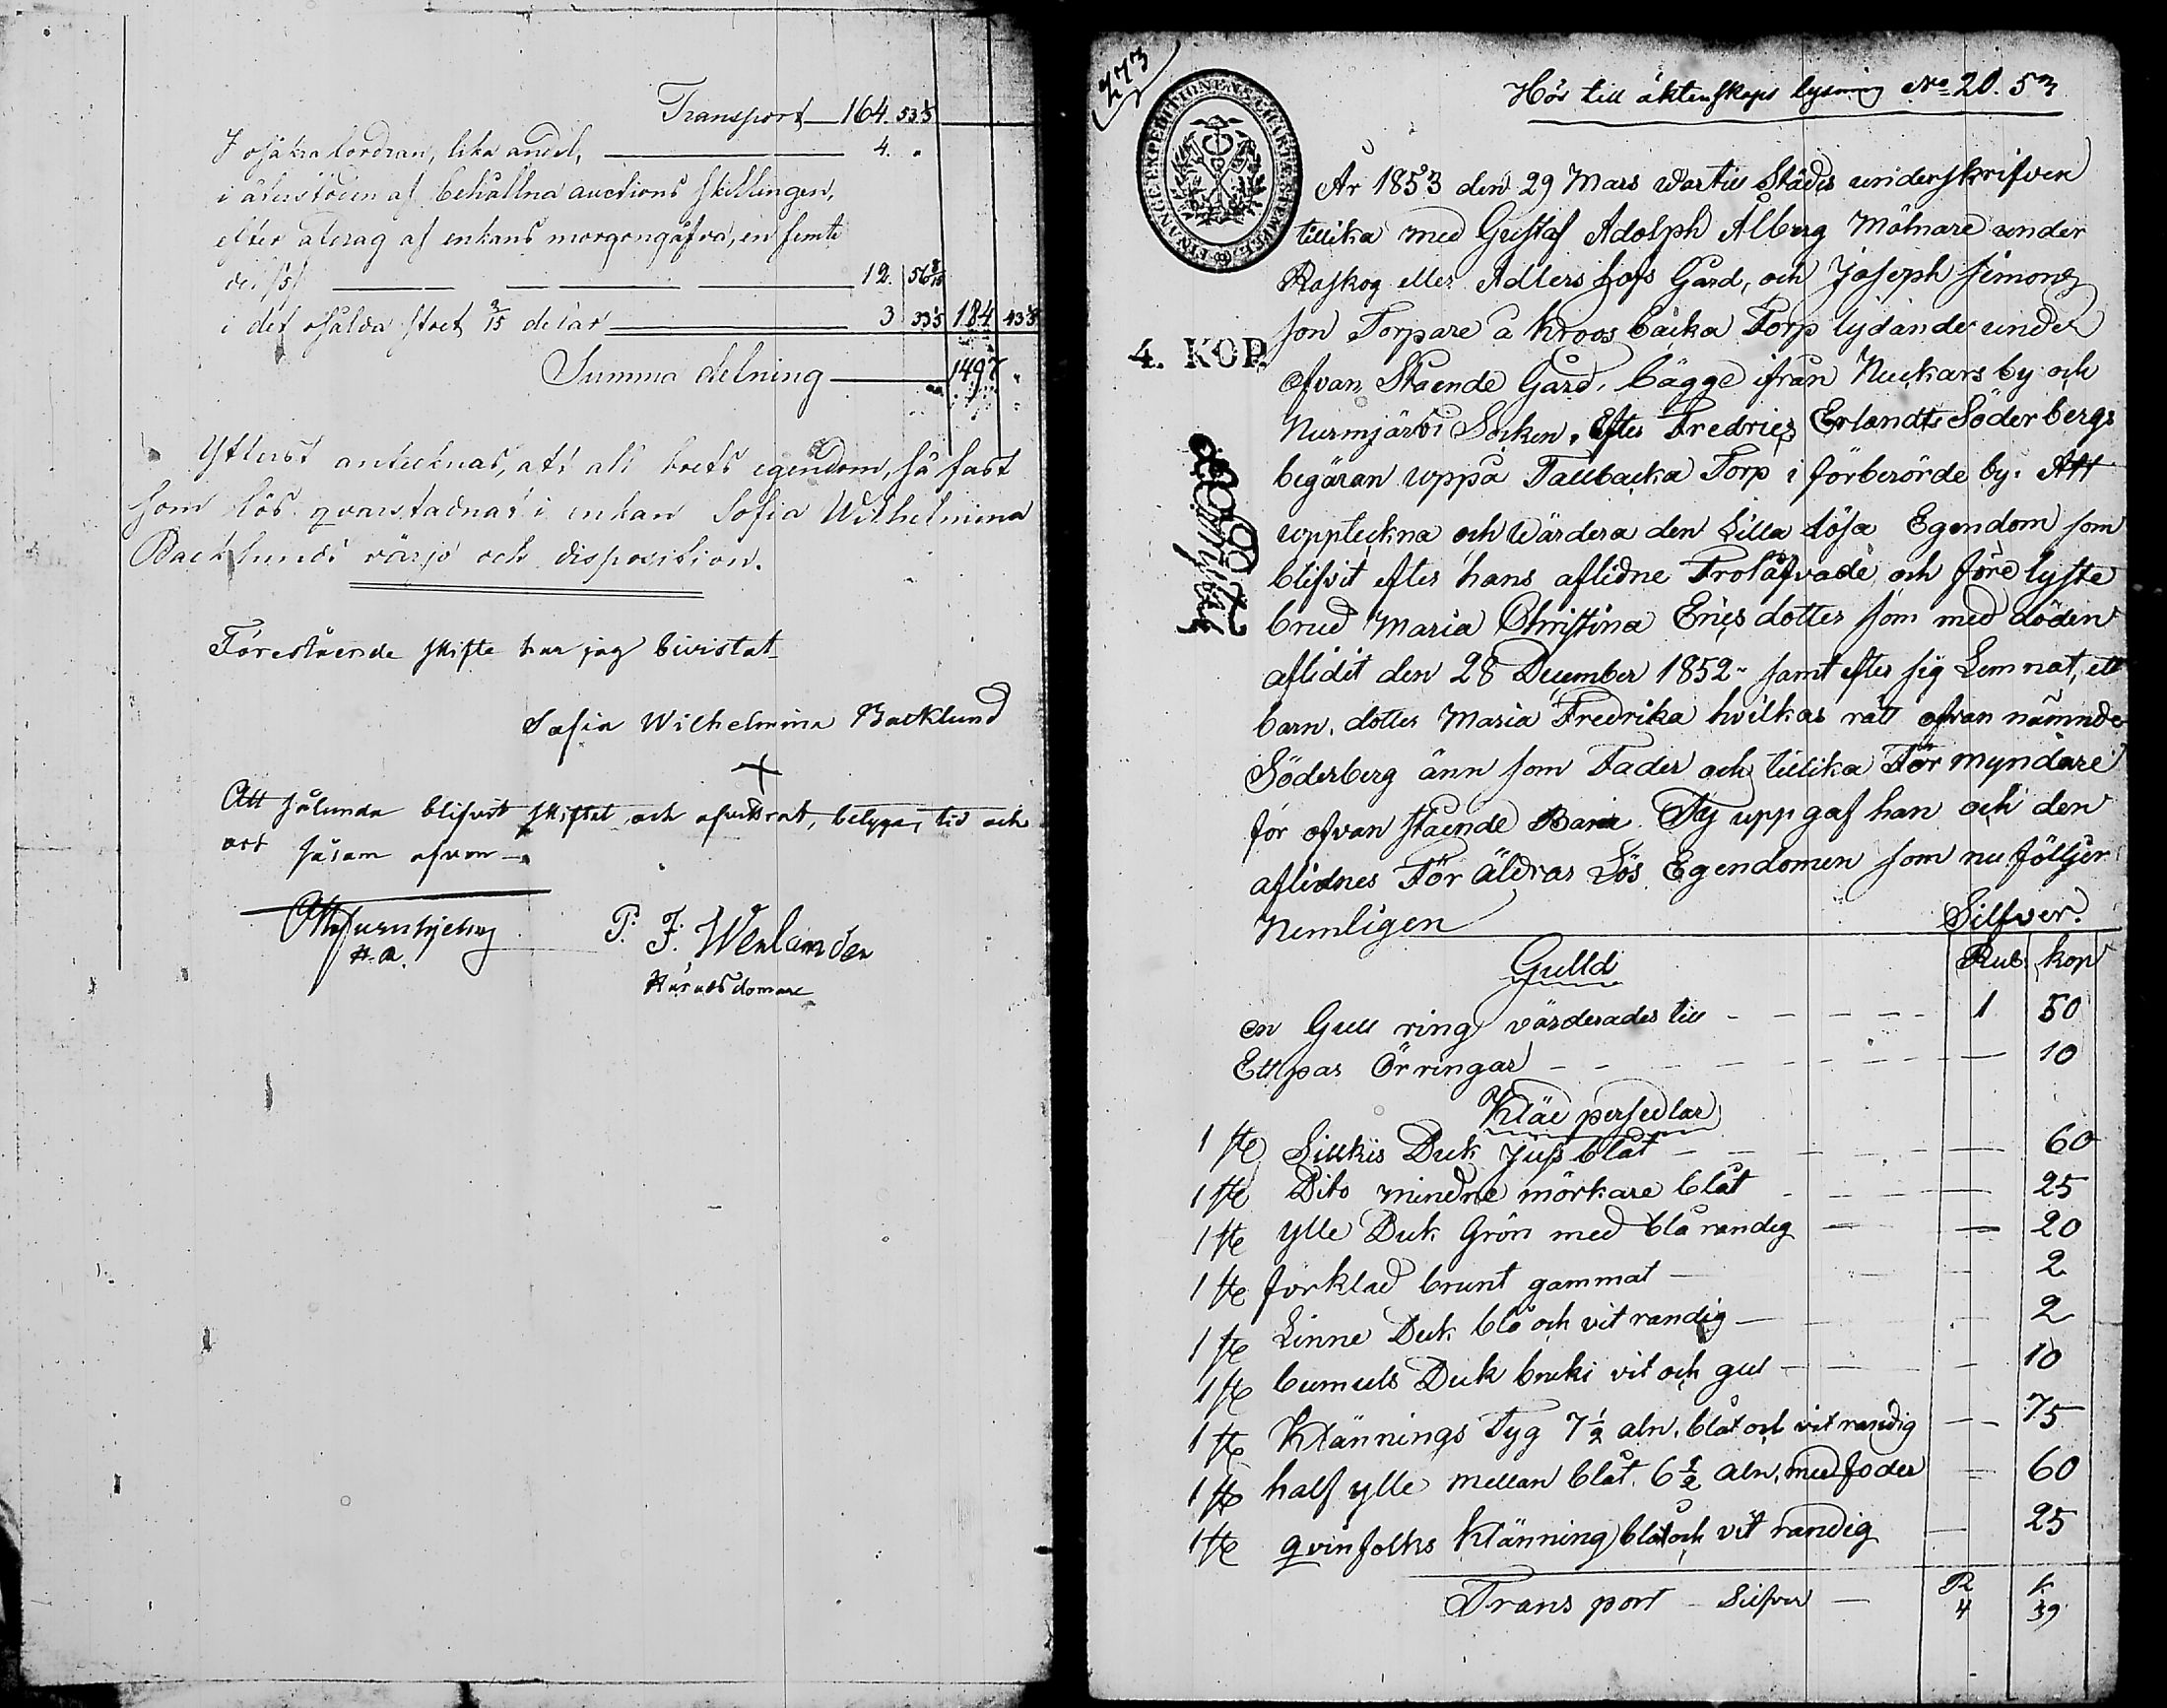 Transport 164. 53⅓
I osäkra fordran, lika andel, 4. "
i återstoden af behållna auctions skillingen,
efter afdrag af enkans morgongåfva, en femte
del 12. 56
i det osålda 2/15 delar 3 33⅓ 184 43
Summa delning 1497 "
Ytterst antecknas, att all boets egendom, så fast
som lös qvarstadnar i enkan Sofia Wilhelmina
Backlunds värjo och disposition.
Förestående skifte har jag bivistat
Sofia Wilhelmina Backlund
Att sålunda blifvit skiftat och afvittrat, betyga, tid och
ort såsom ofvan
P. F. Wenlander
Häradsdomare
273
Hör till äktenskaps lysning No 20. 53
FINANCE EXPEDITIONENS CHARTÆ STEMPEL
4. KOP.
År 1853 den 29 Mars vartil Städs underskrifven
tillika med Gustaf Adolph Ålberg Mölnare under
Raskog eller Adlers hofs Gård, och Joseph Simons
son Torpare å Kroos backa Torp lydande under
ofvan Stående Gård, bägge ifrån Nuckars by och
Nurmjärvi Socken, Efter Fredrics Erlandts Söderbergs
begäran uppå Tallbacka Torp i förberörde by. Att
uppteckna och Wärdera den Lilla Lösa Egendom som
blifvit efter hans aflidne Trolåfvade och före lyste
brud Maria Christina Erics dotter som med döden
aflidit den 28 December 1852 samt efter sig Lemnat, ett
barn, dotter Maria Fredrika hvilkas rätt ofvan nämnde
Söderberg änn som Fader och tillika För myndare
för ofvan stående Barn. Ty upp gaf han och den
aflidnes För äldrar Lös Egendomen som nu följer
Nemligen Silfver.
Gulld Rub. kop
en Gull ring värderades till 1 50
Ett par Örringar 10
Kläe persedlar
1 st Sillkis Duk jus blåt 60
1 st Dito mindre mörkare blåt 25
1 st ylle Duk Grön med blå randig 20
1 st förklad brunt gammat 2
1 st Linne Duk blå och vit randig 2
1 st bumuls Duk bruki vit och gul 10
1 st Klännings Tyg 7½ aln. blåt och vit randig 75
1 st half ylle mellan blåt 6½ aln, med foder 60
1 st qvinfolks Klänning blåt och vit randig 25
Trans port Silfver R 4 k 39